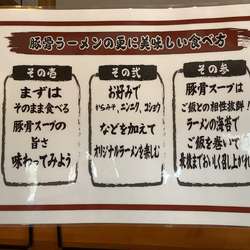 豚骨ラーメンの更に美味しい食べ方
その壱
まずは
そのまま食べる
豚骨スープの
旨さ
味わってみよう
その弐
お好みで
からみそ、ニンニク、コショウ
などを加えて
オリジナルラーメンを楽しむ
その参
豚骨スープは
ご飯との相性抜群!
ラーメンの海苔で
ご飯を巻いて
最後までおいしく召し上がれ